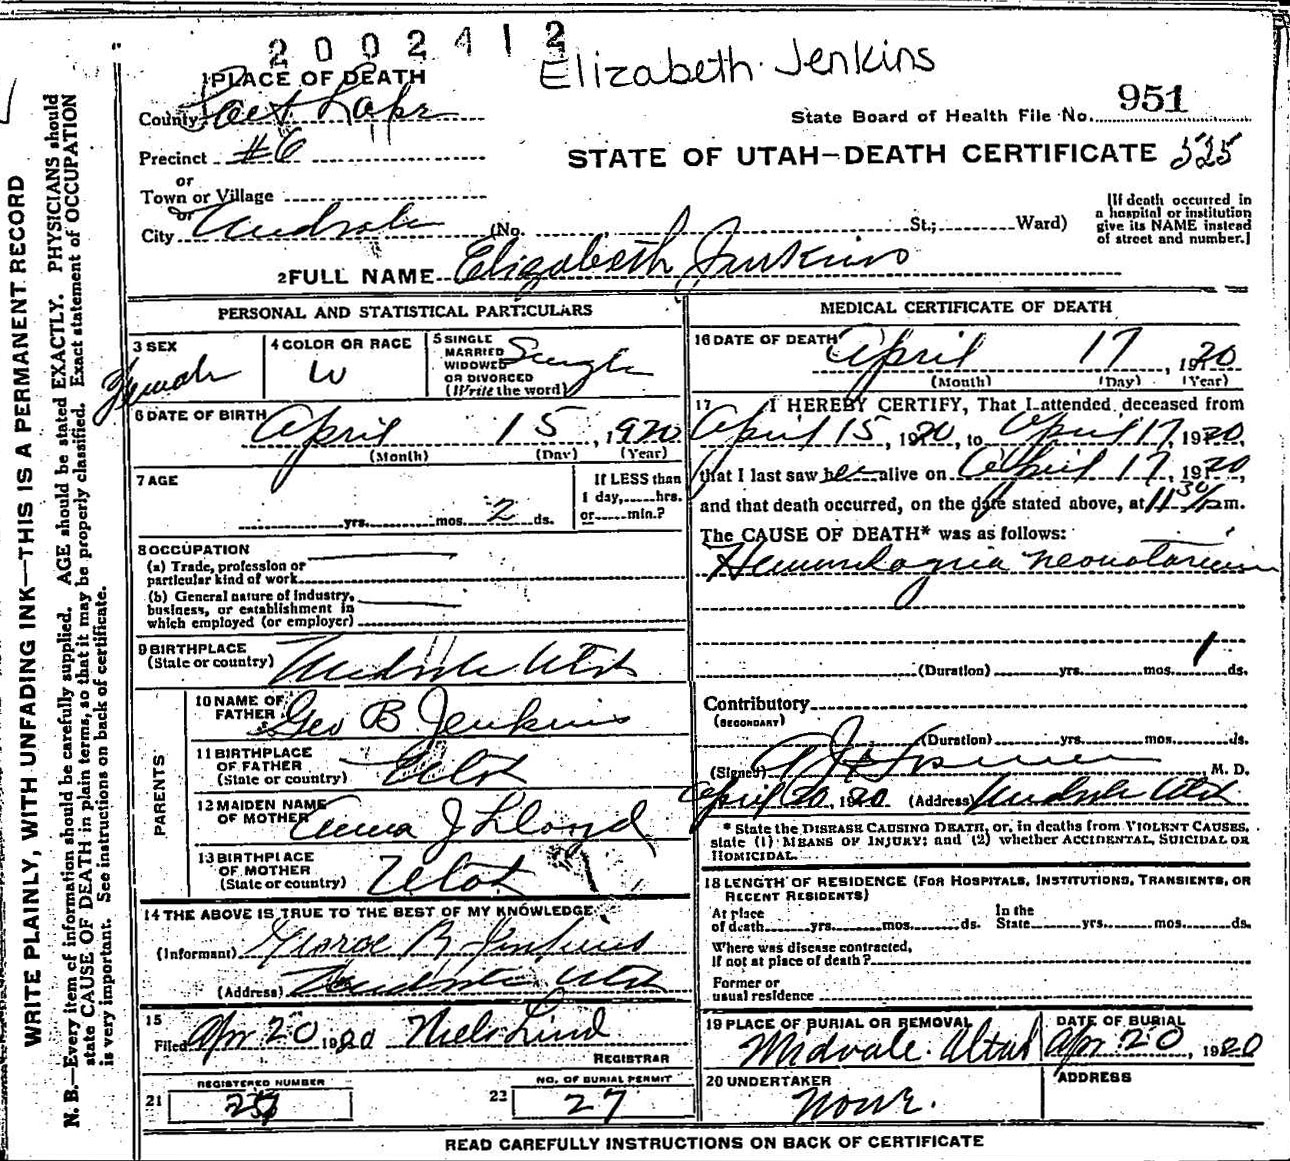 2002412
Elizabeth Jenkins
1 PLACE OF DEATH
County Salt Lake
State Board of Health File No. 951
Precinct #6
STATE OF UTAH—DEATH CERTIFICATE 525
or
Town or Village
or
City Midvale (No. St.; Ward)
[If death occurred in
a hospital or institution
give its NAME instead
of street and number.]
2 FULL NAME Elizabeth Jenkins
PERSONAL AND STATISTICAL PARTICULARS
3 SEX
Female
4 COLOR OR RACE
W
5 SINGLE
MARRIED
WIDOWED
OR DIVORCED
(Write the word)
Single
6 DATE OF BIRTH
April 15, 1920
(Month) (Day) (Year)
7 AGE
yrs. mos. 2 ds.
If LESS than
1 day, hrs.
or min.?
8 OCCUPATION
(a) Trade, profession or
particular kind of work
(b) General nature of industry,
business, or establishment in
which employed (or employer)
9 BIRTHPLACE
(State or country) Midvale Utah
PARENTS
10 NAME OF
FATHER Geo B Jenkins
11 BIRTHPLACE
OF FATHER
(State or country) Utah
12 MAIDEN NAME
OF MOTHER Anna J Lloyd
13 BIRTHPLACE
OF MOTHER
(State or country) Utah
14 THE ABOVE IS TRUE TO THE BEST OF MY KNOWLEDGE
(Informant) George B Jenkins
(Address) Midvale Utah
15
Filed Apr 20 1920 Niels Lind
REGISTRAR
21 REGISTERED NUMBER
22 NO. OF BURIAL PERMIT
27
MEDICAL CERTIFICATE OF DEATH
16 DATE OF DEATH
April 17, 1920
(Month) (Day) (Year)
17 I HEREBY CERTIFY, That I attended deceased from
April 15, 1920, to April 17, 1920,
that I last saw her alive on April 17, 1920,
and that death occurred, on the date stated above, at 11 30 m.
The CAUSE OF DEATH* was as follows:
Hemorrhagia neonatorium
(Duration) yrs. mos. 1 ds.
Contributory
(SECONDARY)
(Duration) yrs. mos. ds.
(Signed) M. D.
April 20, 1920 (Address) Midvale Utah
* State the DISEASE CAUSING DEATH, or, in deaths from VIOLENT CAUSES,
state (1) MEANS OF INJURY; and (2) whether ACCIDENTAL, SUICIDAL OR
HOMICIDAL.
18 LENGTH OF RESIDENCE (FOR HOSPITALS, INSTITUTIONS, TRANSIENTS, OR
RECENT RESIDENTS)
At place
of death yrs. mos. ds.
In the
State yrs. mos. ds.
Where was disease contracted,
If not at place of death?
Former or
usual residence
19 PLACE OF BURIAL OR REMOVAL
Midvale. Utah
DATE OF BURIAL
Apr 20, 1920
20 UNDERTAKER
None.
ADDRESS
READ CAREFULLY INSTRUCTIONS ON BACK OF CERTIFICATE
WRITE PLAINLY, WITH UNFADING INK—THIS IS A PERMANENT RECORD
N. B.—Every item of information should be carefully supplied. AGE should be stated EXACTLY. PHYSICIANS should
state CAUSE OF DEATH in plain terms, so that it may be properly classified. Exact statement of OCCUPATION
is very important. See instructions on back of certificate.